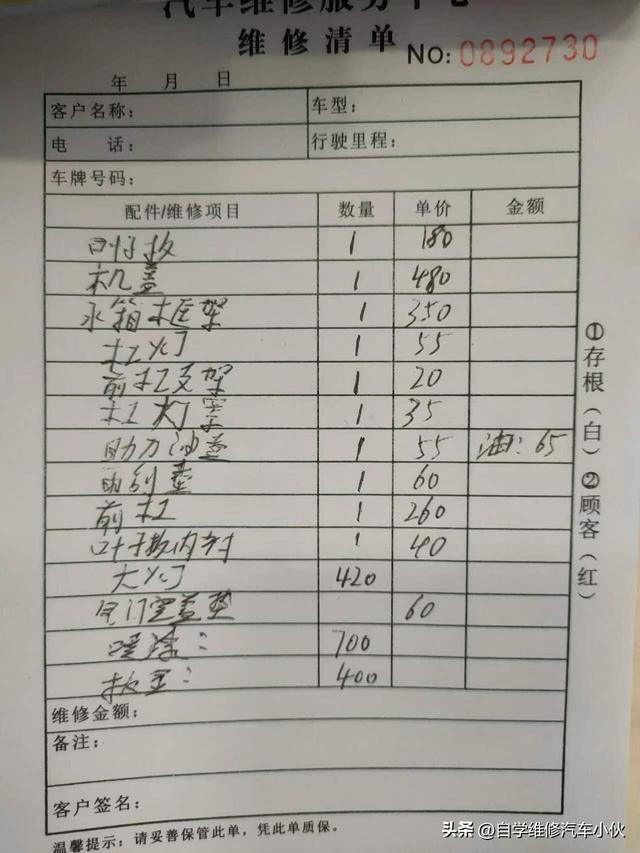 汽车维修服务中心
维修清单
NO: 0892730
年 月 日
客户名称： 车型：
电 话： 行驶里程：
车牌号码：
配件/维修项目 数量 单价 金额
叶子板 1 180
机盖 1 480
水箱框架 1 350
杠灯 1 55
前杠支架 1 20
杠灯罩 1 35
助力油盖 1 55 油：65
1 60
前杠 1 260
叶子板内衬 1 40
大灯 420
气门室盖垫 60
喷漆： 700
钣金： 400
维修金额：
备注：
客户签名：
温馨提示：请妥善保管此单，凭此单质保。
①存根（白）②顾客（红）
头条 @自学维修汽车小伙